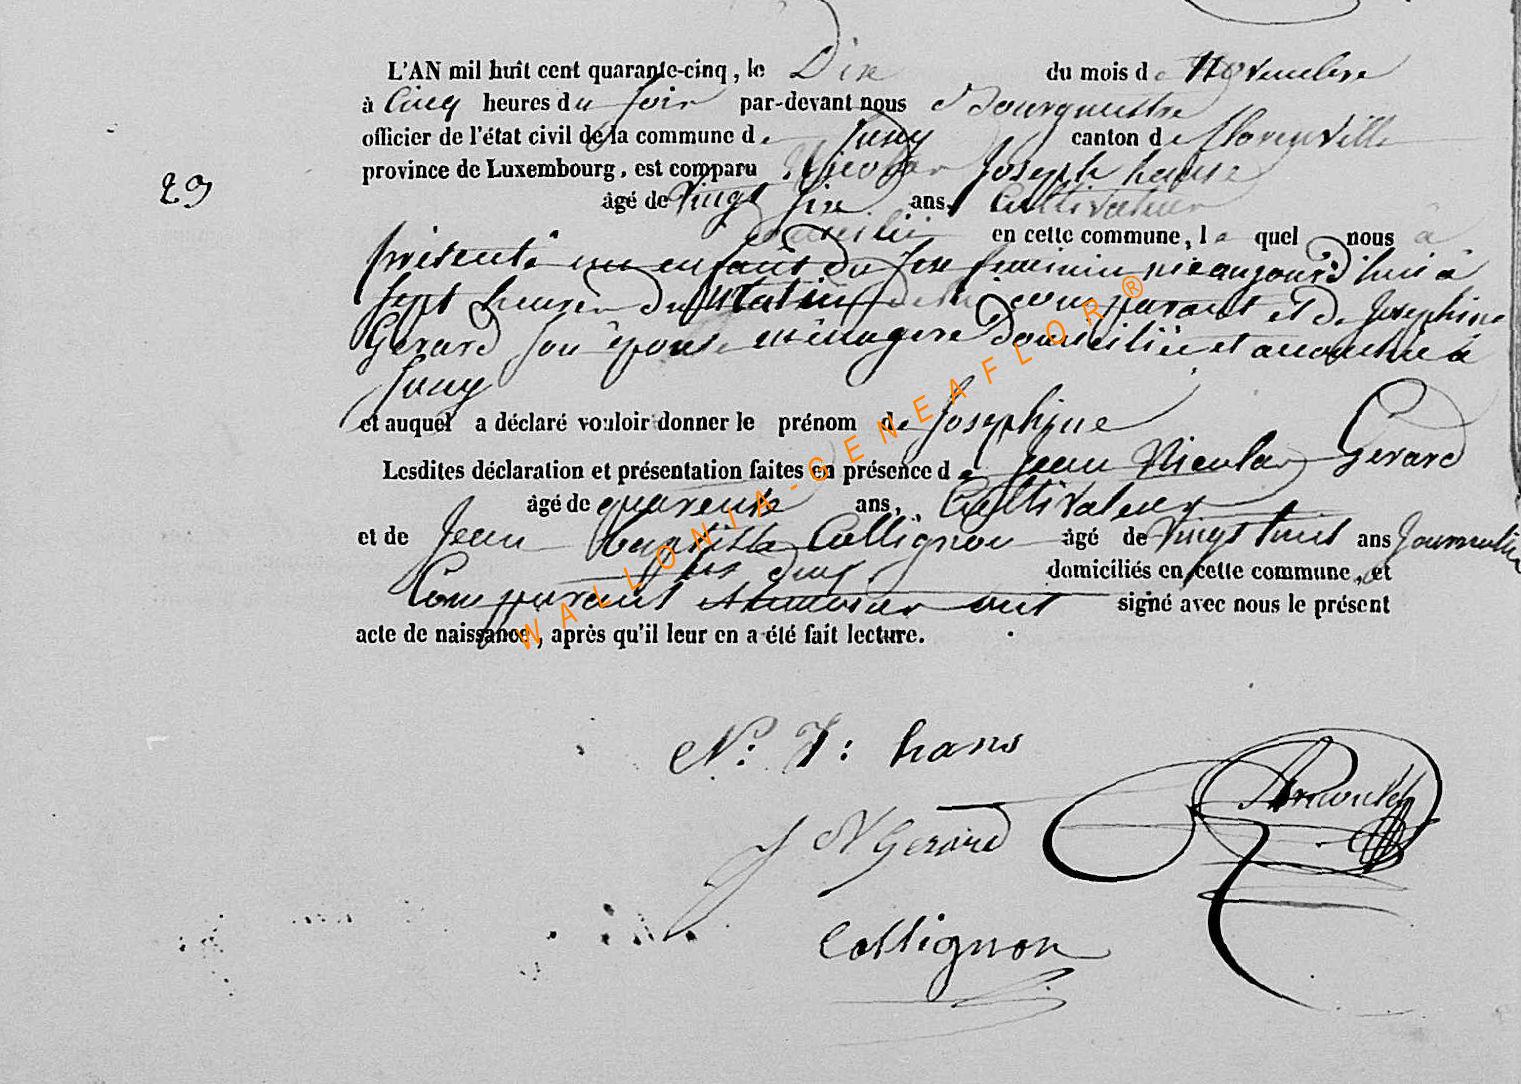 L'AN mil huit cent quarante-cinq, le Dix du mois de Novembre
à Cinq heures du soir par-devant nous Bourgmestre
officier de l'état civil de la commune de canton de florenville
province de Luxembourg, est comparu Nicolas Joseph hanse
29
âgé de Vingt six ans, Cultivateur
domicilié en cette commune, le quel nous a
présenté un enfant du sexe feminin née aujourd'hui à
sept heures du Matin de lui comparant et de Josephine
Gerard son épouse ménagere domiciliée et accouchée à
et auquel a déclaré vouloir donner le prénom de Josephine
Lesdites déclaration et présentation faites en présence de Jean Nicolas Gerard
âgé de quarente ans, Cultivateur
et de Jean baptiste Collignon âgé de Vingt huit ans Journalier
domiciliés en cette commune, et
Comparant et temoins ont signé avec nous le présent
acte de naissance, après qu'il leur en a été fait lecture.
N. J: hans
J N Gerard
Collignon
WALLONIA-GENEAFLOR®